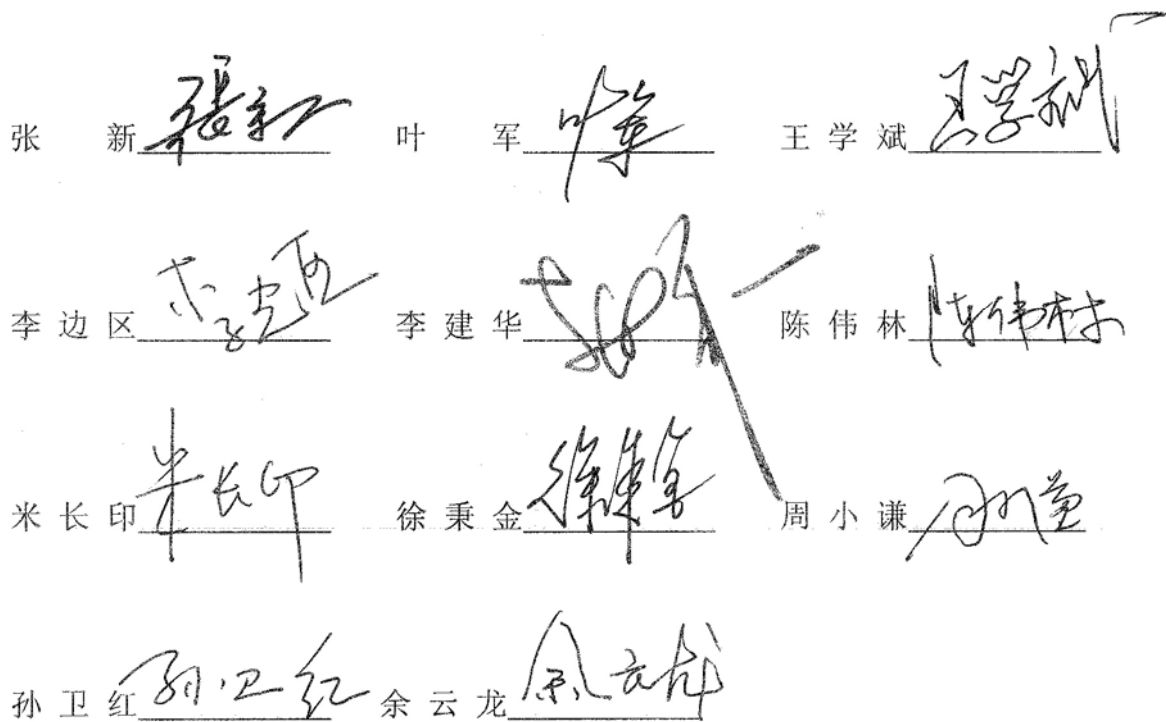 张新 張新 叶军 叶军 王学斌 王学斌
李边区 李边区 李建华 陈伟林 陈伟林
米长印 米长印 徐秉金 徐秉金 周小谦 周小谦
孙卫红 孙卫红 余云龙 余云龙